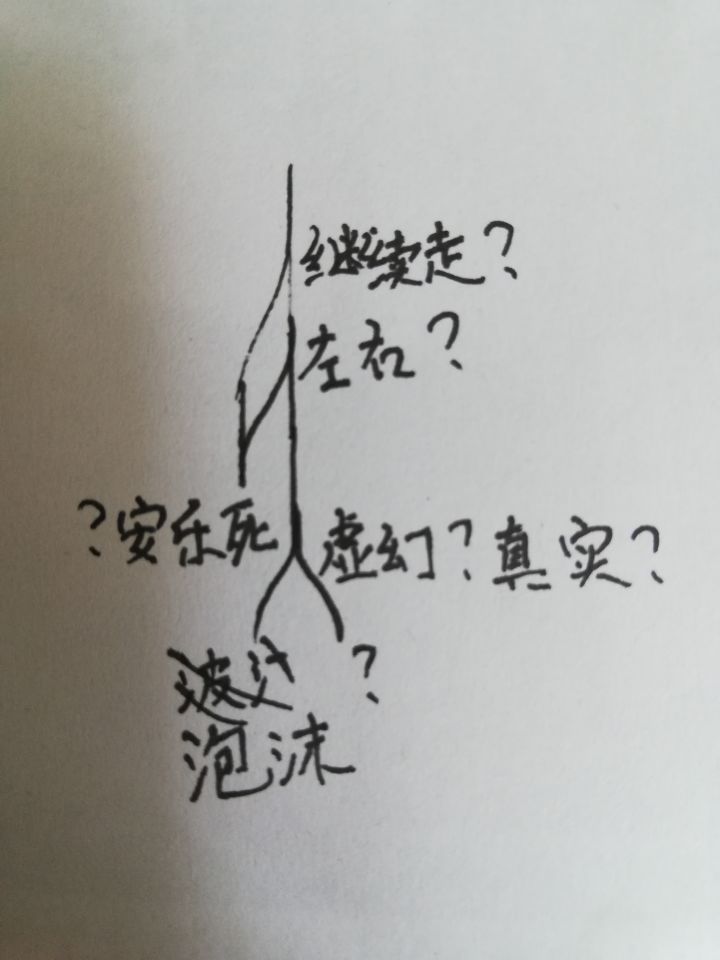 继续走？
左右？
？安乐死
虚幻？真实？
？
泡沫